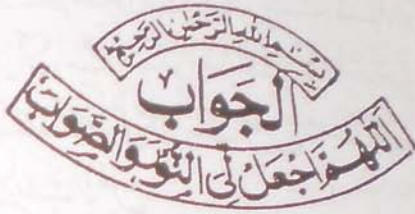 بِسْمِ اللهِ الرَّحْمٰنِ الرَّحِيْمِ
الْجَوَاب
اَللّٰهُمَّ اجْعَلْ لِیَ النُّوْرَ وَالصَّوَابَ